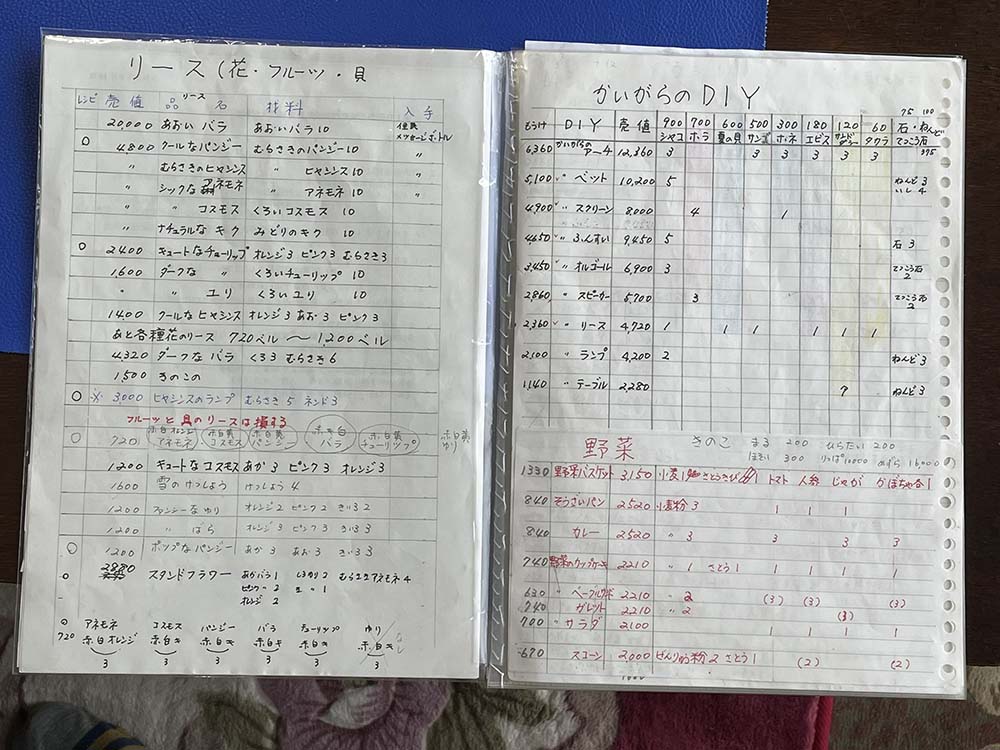 リース (花・フルーツ・貝
レシピ 売値 品 リース 名 材料 入手
20,000 あおいバラ あおいバラ10 住民 メッセージボトル
○ 4800 クールなパンジー むらさきのパンジー10 〃
〃 むらさきのヒヤシンス 〃 ヒヤシンス10 〃
〃 シックなアネモネ 〃 アネモネ10 〃
〃 〃 コスモス くろいコスモス 10
〃 ナチュラルなキク みどりのキク 10
○ 2400 キュートなチューリップ オレンジ3 ピンク3 むらさき3
1,600 ダークな 〃 くろいチューリップ 10
〃 〃 ユリ くろいユリ 10
1400 クールなヒヤシンス オレンジ3 あお3 ピンク3
あと各種花のリース 720ベル 〜 1,200ベル
4,320 ダークなバラ くろ3 むらさき6
1,500 きのこの
○ ※ 3,000 ヒヤシンスのランプ むらさき5 ネンド3
フルーツと貝のリースは損する
○ 720 赤白オレンジ アネモネ 赤白黄 コスモス 赤白黄 パンジー 赤キ白 バラ 赤白黄 チューリップ 赤白黄 ゆり
1,200 キュートなコスモス あか3 ピンク3 オレンジ3
1600 雪のけっしょう けっしょう4
1200 ファンシーなゆり オレンジ2 ピンク2 きいろ2
1200 〃 ばら オレンジ3 ピンク3 きいろ3
○ 1200 ポップなパンジー あか3 あお3 きいろ3
○ 2880 スタンドフラワー あかバラ1 しろゆり2 むらさきアネモネ4
ピンク〃2 〃1
オレンジ2
○ アネモネ コスモス パンジー バラ チューリップ ゆり
720 赤白オレンジ 赤白キ 赤白キ 赤白キ 赤白キ 赤白キ
3 3 3 3 3 3
かいがらのDIY
75 100
もうけ DIY 売値 900 700 600 500 300 180 120 60 石・ねんど
シャコ ホラ 夏の貝 サンゴ ホネ エビス サンドダラー タカラ てっこう石 375
6,360 かいがらのアーチ 12,360 3 3 3 3 3 3
5,100 〃 ベット 10,200 5 ねんど3 いし4
4,900 〃 スクリーン 8,000 4 1
4650 〃 ふんすい 9,450 5 石3
3,450 〃 オルゴール 6,900 3 てっこう石 2
2,860 〃 スピーカー 5,700 3 てっこう石 2
2,360 〃 リース 4,720 1 1 1 1 1 1
2,100 〃 ランプ 4,200 2 ねんど3
1,140 〃 テーブル 2,280 7 ねんど3
野菜 きのこ まる 200 ひらたい 200
ほそい 300 りっぱ10000 めずら 16,000
1330 野菜バスケット 3,150 小麦1 さとうきび1 トマト 人参 じゃが かぼちゃ各1
840 そうざいパン 2520 小麦粉3 1 1 1
840 カレー 2520 〃 3 3 3 3
740 野菜のカップケーキ 2210 〃 1 さとう1 1 1 1 1
630 〃 ベーグルサンド 2210 〃 2 (3) (3) (3)
740 ガレット 2210 〃 2 (3)
700 〃 サラダ 2100 1 1 1 1
670 スコーン 2,000 ぜんりゅう粉2 さとう1 (2) (2)